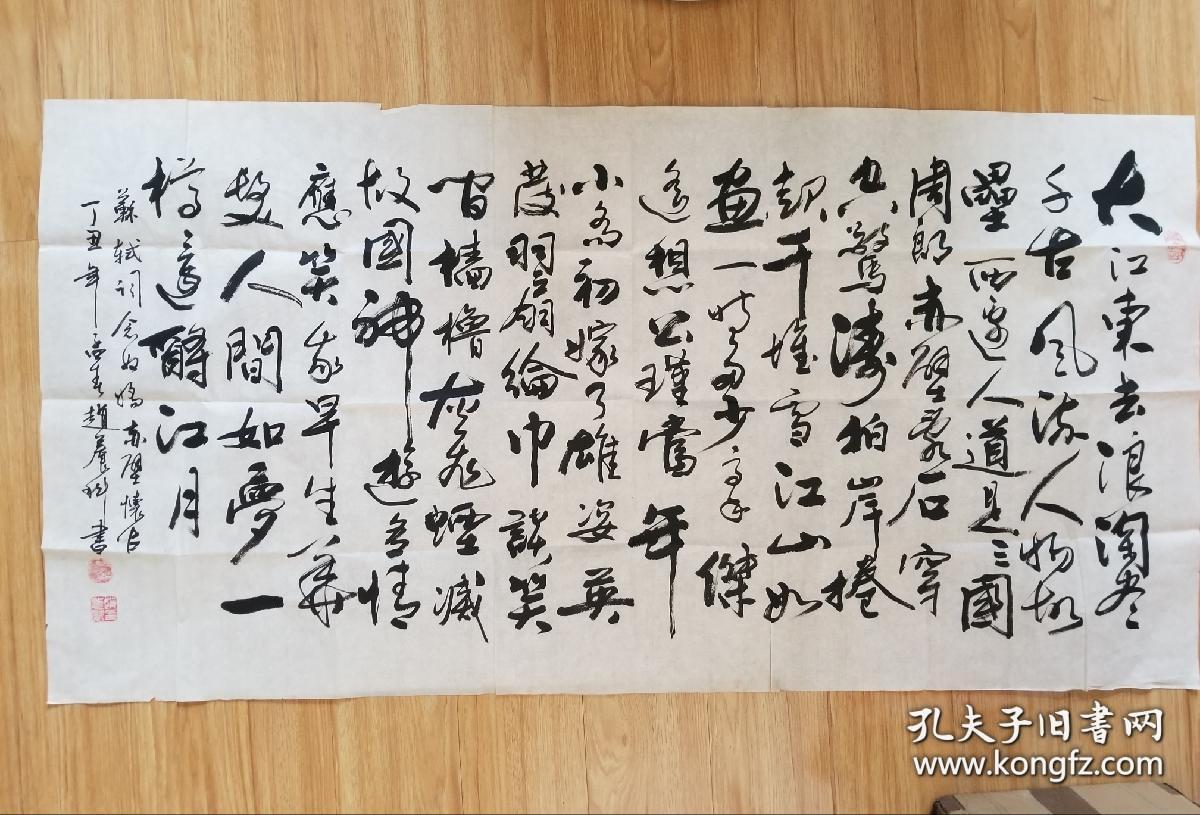 大江東去浪淘尽
千古風流人物故
壘西邊人道是三國
周郎赤壁亂石穿
空驚濤拍岸捲
起千堆雪江山如
畫一時多少豪傑
遙想公瑾當年
小喬初嫁了雄姿英
發羽扇綸巾談笑
間檣櫓灰飛煙滅
故國神遊多情
應笑我早生華
髮人間如夢一
樽還酹江月
蘇軾詞念奴嬌赤壁懷古
丁丑年趙書
孔夫子旧书网
www.kongfz.com